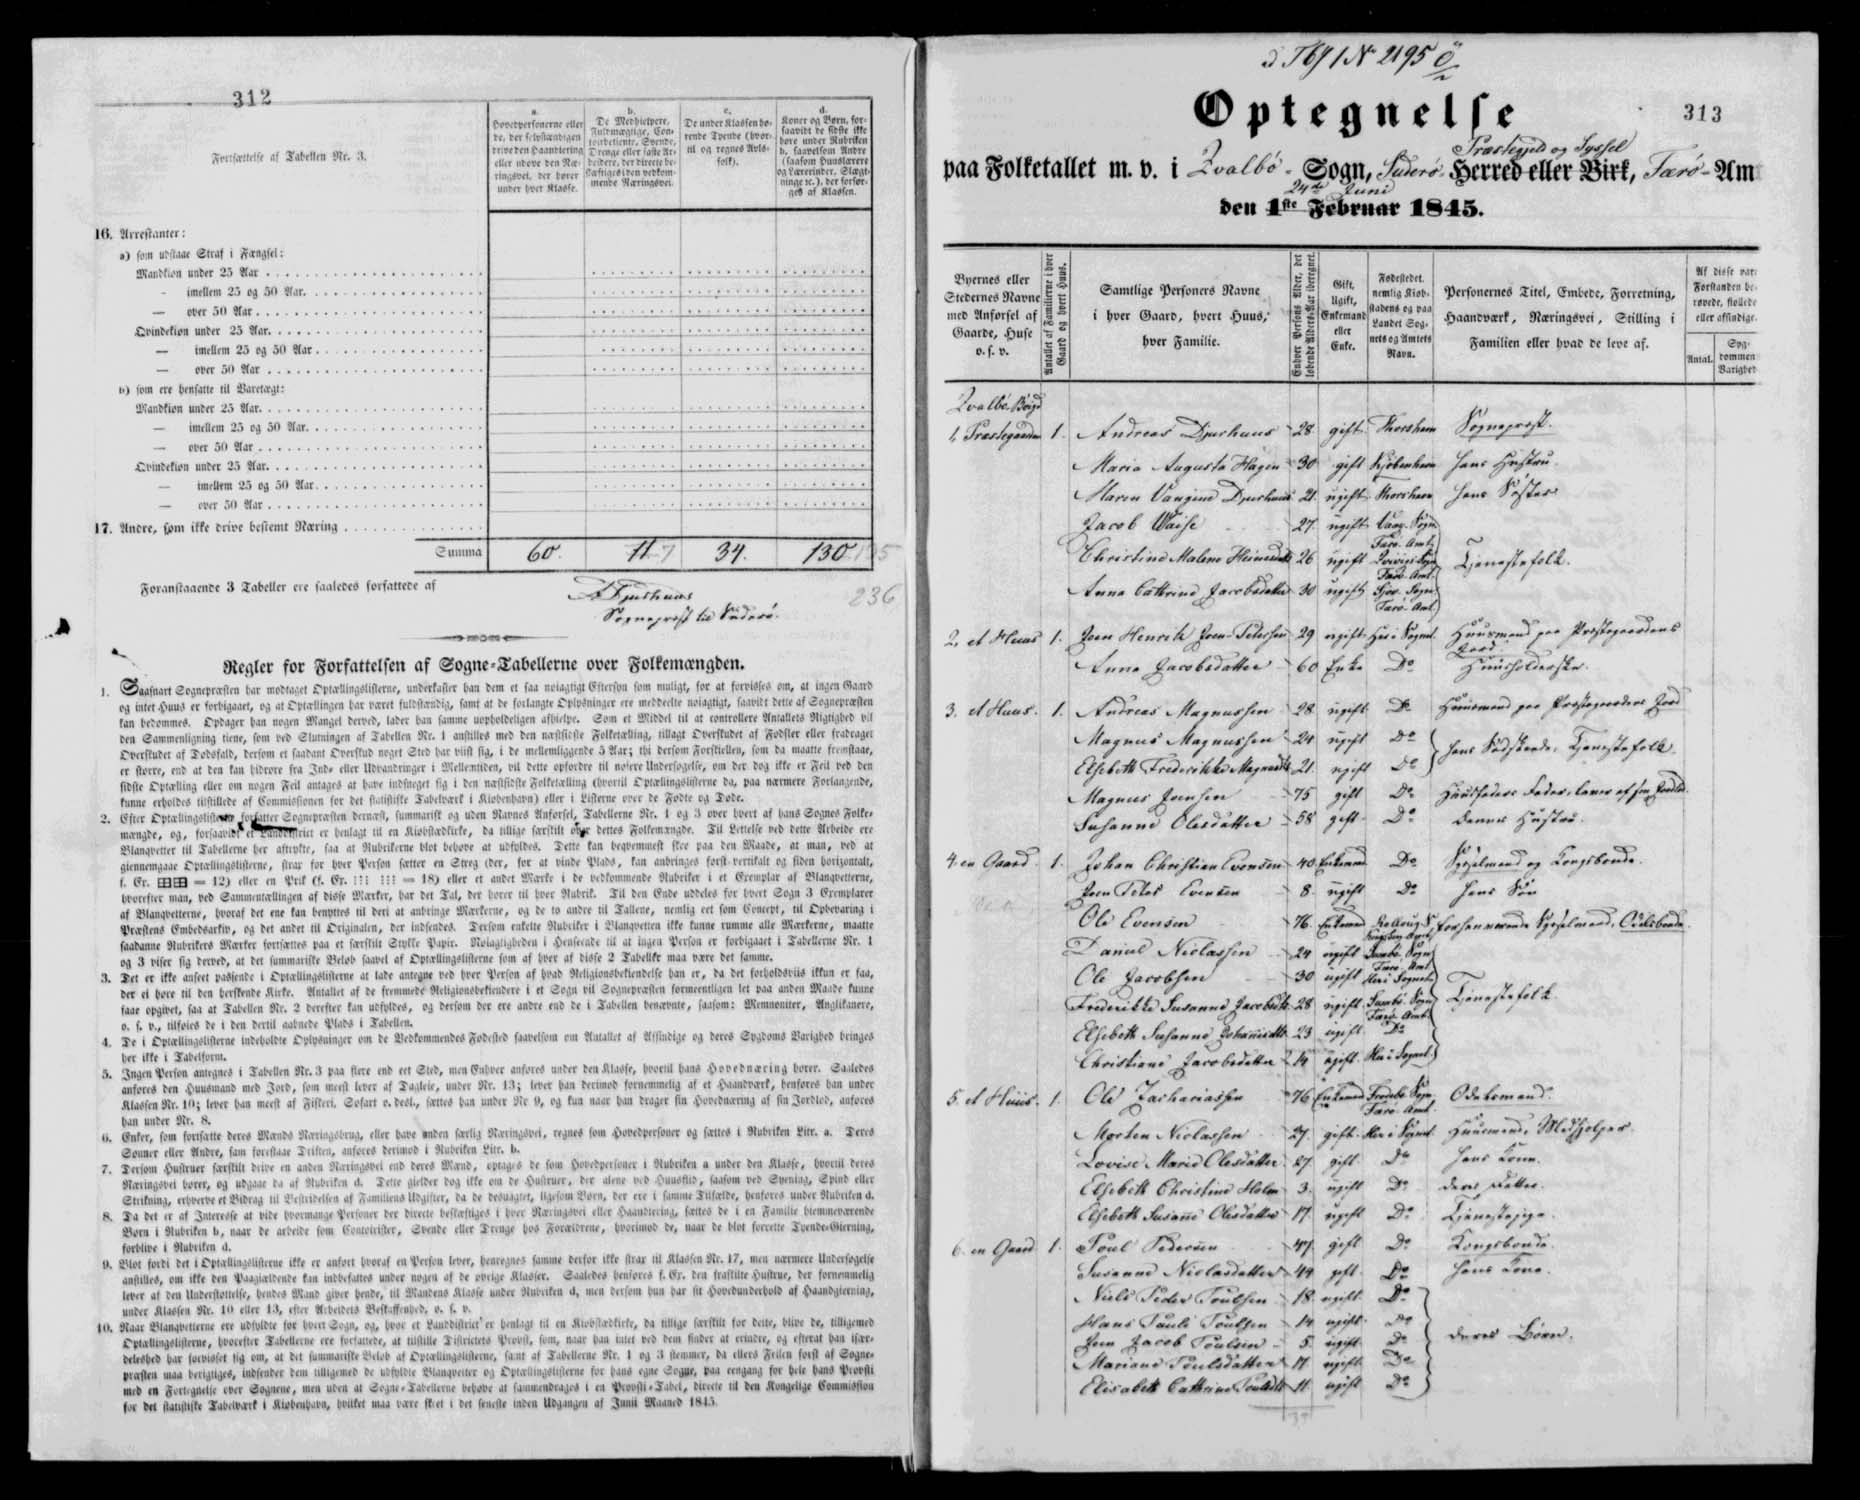 312
Fortsættelse af Tabellen Nr. 3.
a.
Hovedpersonerne eller
de, der selvstændigen
drive den Haandtering
eller udøve den Næ-
ringsvei, der hører
under hver Klasse.
b.
De Medhielpere,
Fuldmægtige, Con-
toirbetiente, Svende,
Drenge eller faste Ar-
beidere, der directe be-
skæftiges i den vedkom-
mende Næringsvei.
c.
De under Klassen hø-
rende Tyende (hvor-
til og regnes Avls-
folk).
d.
Koner og Børn, for-
saavidt de sidste ikke
høre under Rubriken
b, saavelsom Andre
(saasom Huuslærere
og Lærerinder, Slægt-
ninge ic.), der forsør-
ges af Klassen.
16. Arrestanter:
a) som udstaae Straf i Fængsel:
Mandkiøn under 25 Aar
- imellem 25 og 50 Aar.
- over 50 Aar
Qvindekiøn under 25 Aar.
— imellem 25 og 50 Aar
— over 50 Aar
b) som ere hensatte til Varetægt:
Mandkiøn under 25 Aar.
— imellem 25 og 50 Aar.
— over 50 Aar
Qvindekiøn under 25 Aar.
— imellem 25 og 50 Aar.
— over 50 Aar
17. Andre, som ikke drive bestemt Næring
Summa 60. 11 7 34. 130. 135
Foranstaaende 3 Tabeller ere saaledes forfattede af
A Djurhuus
Sognepræst til Suderø.
236
Regler for Forfattelsen af Sogne-Tabellerne over Folkemængden.
1. Saasnart Sognepræsten har modtaget Optællingslisterne, underkaster han dem et saa nøiagtigt Eftersyn som muligt, for at forvisses om, at ingen Gaard
og intet Huus er forbigaaet, og at Optællingen har været fuldstændig, samt at de forlangte Oplysninger ere meddeelte nøiagtigt, saavidt dette af Sognepræsten
kan bedømmes. Opdager han nogen Mangel derved, lader han samme uopholdeligen afhielpe. Som et Middel til at controllere Antallets Rigtighed vil
den Sammenligning tiene, som ved Slutningen af Tabellen Nr. 1 anstilles med den næstsidste Folketælling, tillagt Overskudet af Fødsler eller fradraget
Overskudet af Dødsfald, dersom et saadant Overskud noget Sted har viist sig, i de mellemliggende 5 Aar; thi dersom Forskiellen, som da maatte fremstaae,
er større, end at den kan hidrøre fra Ind- eller Udvandringer i Mellemtiden, vil dette opfordre til nøiere Undersøgelse, om der dog ikke er Feil ved den
sidste Optælling eller om nogen Feil antages at have indsneget sig i den næstsidste Folketælling (hvortil Optællingslisterne da, paa nærmere Forlangende,
kunne erholdes tilstillede af Commissionen for det statistiske Tabelværk i Kiøbenhavn) eller i Listerne over de Fødte og Døde.
2. Efter Optællingslisterne forfatter Sognepræsten dernæst, summarisk og uden Navnes Anførsel, Tabellerne Nr. 1 og 3 over hvert af hans Sognes Folke-
mængde, og, forsaavidt et Landdistrict er henlagt til en Kiøbstadkirke, da tillige særskilt over dettes Folkemængde. Til Lettelse ved dette Arbeide ere
Blanqvetter til Tabellerne her aftrykte, saa at Rubrikerne blot behøve at udfyldes. Dette kan beqvemmest skee paa den Maade, at man, ved at
giennemgaae Optællingslisterne, strax for hver Person sætter en Streg (der, for at vinde Plads, kan anbringes først vertikalt og siden horizontalt,
f. Ex. = 12) eller en Prik (f. Ex. = 18) eller et andet Mærke i de vedkommende Rubriker i et Exemplar af Blanqvetterne,
hvorefter man, ved Sammentællingen af disse Mærker, har det Tal, der hører til hver Rubrik. Til den Ende uddeles for hvert Sogn 3 Exemplarer
af Blanqvetterne, hvoraf det ene kan benyttes til deri at anbringe Mærkerne, og de to andre til Tallene, nemlig eet som Concept, til Opbevaring i
Præstens Embedsarkiv, og det andet til Originalen, der indsendes. Dersom enkelte Rubriker i Blanqvetten ikke kunne rumme alle Mærkerne, maatte
saadanne Rubrikers Mærker fortsættes paa et særskilt Stykke Papir. Nøiagtigheden i Henseende til at ingen Person er forbigaaet i Tabellerne Nr. 1
og 3 viser sig derved, at det summariske Beløb saavel af Optællingslisterne som af hver af disse 2 Tabeller maa være det samme.
3. Det er ikke anseet passende i Optællingslisterne at lade antegne ved hver Person af hvad Religionsbekiendelse han er, da det forholdsviis ikkun er faa,
der ei høre til den herskende Kirke. Antallet af de fremmede Religionsbekiendere i et Sogn vil Sognepræsten formeentligen let paa anden Maade kunne
faae opgivet, saa at Tabellen Nr. 2 derefter kan udfyldes, og dersom der ere andre end de i Tabellen benævnte, saasom: Memnoniter, Anglikanere,
o. s. v., tilføies de i den dertil aabnede Plads i Tabellen.
4. De i Optællingslisterne indeholdte Oplysninger om de Vedkommendes Fødested saavelsom om Antallet af Affindige og deres Sygdoms Varighed bringes
her ikke i Tabelform.
5. Ingen Person antegnes i Tabellen Nr. 3 paa flere end eet Sted, men Enhver anføres under den Klasse, hvortil hans Hovednæring hører. Saaledes
anføres den Huusmand med Jord, som meest lever af Dagleie, under Nr. 13; lever han derimod fornemmelig af et Haandværk, henføres han under
Klassen Nr. 10; lever han meest af Fiskeri, Søfart o. desl., sættes han under Nr. 9, og kun naar han drager sin Hovednæring af sin Jordlod, anføres
han under Nr. 8.
6. Enker, som fortsætte deres Mænds Næringsbrug, eller have anden særlig Næringsvei, regnes som Hovedpersoner og sættes i Rubriken Litr. a. Deres
Sønner eller Andre, sam forestaae Driften, anføres derimod i Rubriken Litr. b.
7. Dersom Hustruer særskilt drive en anden Næringsvei end deres Mænd, optages de som Hovedpersoner i Rubriken a under den Klasse, hvortil deres
Næringsvei hører, og udgaae da af Rubriken d. Dette gielder dog ikke om de Hustruer, der alene ved Huusflid, saasom ved Syening, Spind eller
Strikning, erhverve et Bidrag til Bestridelsen af Familiens Udgifter, da de desuagtet, ligesom Børn, der ere i samme Tilfælde, henføres under Rubriken d.
8. Da det er af Interesse at vide hvormange Personer der directe beskæftiges i hver Næringsvei eller Haandtering, sættes de i en Familie hiemmeværende
Børn i Rubriken b, naar de arbeide som Contoirister, Svende eller Drenge hos Forældrene, hvorimod de, naar de blot forrette Tyende-Gierning,
forblive i Rubriken d.
9. Blot fordi det i Optællingslisterne ikke er anført hvoraf en Person lever, henregnes samme derfor ikke strax til Klassen Nr. 17, men nærmere Undersøgelse
anstilles, om ikke den Paagiældende kan indbefattes under nogen af de øvrige Klasser. Saaledes henføres f. Ex. den fraskilte Hustrue, der fornemmelig
lever af den Understøttelse, hendes Mand giver hende, til Mandens Klasse under Rubriken d, men dersom hun har sit Hovedunderhold af Haandgierning,
under Klassen Nr. 10 eller 13, efter Arbeidets Beskaffenhed, o. s. v.
10. Naar Blanqvetterne ere udfyldte for hvert Sogn, og, hvor et Landdistrict er henlagt til en Kiøbstadkirke, da tillige særskilt for dette, blive de, tilligemed
Optællingslisterne, hvorefter Tabellerne ere forfattede, at tilstille Districtets Provst, som, naar han intet ved dem finder at erindre, og efterat han især-
deleshed har forvisset sig om, at det summariske Beløb af Optællingslisterne, samt af Tabellerne Nr. 1 og 3 stemmer, da ellers Feilen forst af Sogne-
præsten maa berigtiges, indsender dem tilligemed de udfyldte Blanqvetter og Optællingslisterne for hans egne Sogne, paa eengang for hele hans Provsti
med en Fortegnelse over Sognene, men uden at Sogne-Tabellerne behøve at sammendrages i en Provsti-Tabel, directe til den Kongelige Commission
for det statistiske Tabelværk i Kiøbenhavn, hvilket maa være skeet i det seneste inden Udgangen af Junii Maaned 1845.
313
Optegnelse
Præstegjeld og Syssel
paa Folketallet m. v. i Qvalbø- Sogn, Suderø- Herred eller Birk, Færø- Am
24de Juni
den 1ste Februar 1845.
Byernes eller
Stedernes Navne
med Anførsel af
Gaarde, Huse
o. s. v.
Antallet af Familierne i hver
Gaard og hvert Huus.
Samtlige Personers Navne
i hver Gaard, hvert Huus,
hver Familie.
Enhver Persons Alder, det
løbende Alders-Aar iberegnet.
Gift,
Ugift,
Enkemand
eller
Enke.
Fødestedet,
nemlig Kiøb-
stadens og paa
Landet Sog-
nets og Amtets
Navn.
Personernes Titel, Embede, Forretning,
Haandværk, Næringsvei, Stilling i
Familien eller hvad de leve af.
Af disse vare
Forstanden be-
røvede, fiollede
eller affindige.
Antal.
Syg-
dommens
Varighed
Qvalbø Bøigd
1, Præstegaarden 1. Andreas Djurhuus 28 gift Thorshavn Sognepræst.
Maria Augusta Hagen 30 gift Kjøbenhavn hans Hustru.
Maren Vangine Djurhuus 21. ugift Thorshavn hans Søster
Jacob Waise 27. ugift Vaag. Sogn
Færø. Amt
Christine Malene 26 ugift Sogn
Færø Amt.
Tjenestefolk.
Anna Cathrine Jacobsdatter 30 ugift Sogn
Færø. Amt.
2, et Huus 1. Joen Henrik Joen-Petersen 29 ugift Her i Sognet. Huusmand paa Præstegaardens
Jord.
Anna Jacobsdatter 60 Enke Do Huusholderske.
3. et Huus. 1. Andreas Magnussen 28. ugift Do Huusmand paa Præstegaardens Jord
Magnus Magnussen 24 ugift Do
hans Sødskende, Tjenestefolk.
Elsebeth Frederikke Magnusdtr 21. ugift Do
Magnus Joensen 75 gift Do Huusfaders Fader, lever af sin Jordlod.
Susanne Olesdatter 58 gift Do dennes Hustru.
4. en Gaard. 1. Johan Christian Evensen 40 Enkemand Do Sysselmand og Kongsbonde.
Joen Peter Evensen 8. ugift Do hans Søn
Ole Evensen 76. Enkemand forhenværende Sysselmand, Odelsbonde
Daniel Niclassen 24 ugift Sumbø. Sogn
Færø. Amt
Ole Jacobsen 30 ugift Her i Sognet
Frederikke Susanne Jacobsdtr. 28 ugift Sumbø. Sogn
Færø. Amt.
Tjenestefolk.
Elsebeth Susanne Johannesdtr. 23 ugift Do
Christiane Jacobsdatter 14 ugift Her i Sognet.
5. et Huus. 1. Ole Zachariassen 76 Enkemand Frodebø Sogn
Færø. Amt. Odelsmand.
Morten Niclassen 27. gift Her i Sognet Huusmand, Medhjelper.
Lovise Marie Olesdatter 27. gift Do hans Kone.
Elsebeth Christine Holm 3. ugift Do deres Datter.
Elsebeth Susanne Olesdatter 17. ugift Do Tjenestepige.
6. en Gaard 1. Poul Pedersen 47. gift Do Kongsbonde.
Susanne Niclasdatter 44 gift Do hans Kone.
Niels Peder Poulsen 18. ugift Do
Hans Pauli Poulsen 14 ugift Do
Joen Jacob Poulsen 5. ugift Do
deres Børn.
Mariane Poulsdatter 17 ugift Do
Elisabeth Cathrine Poulsdtr 11 ugift Do